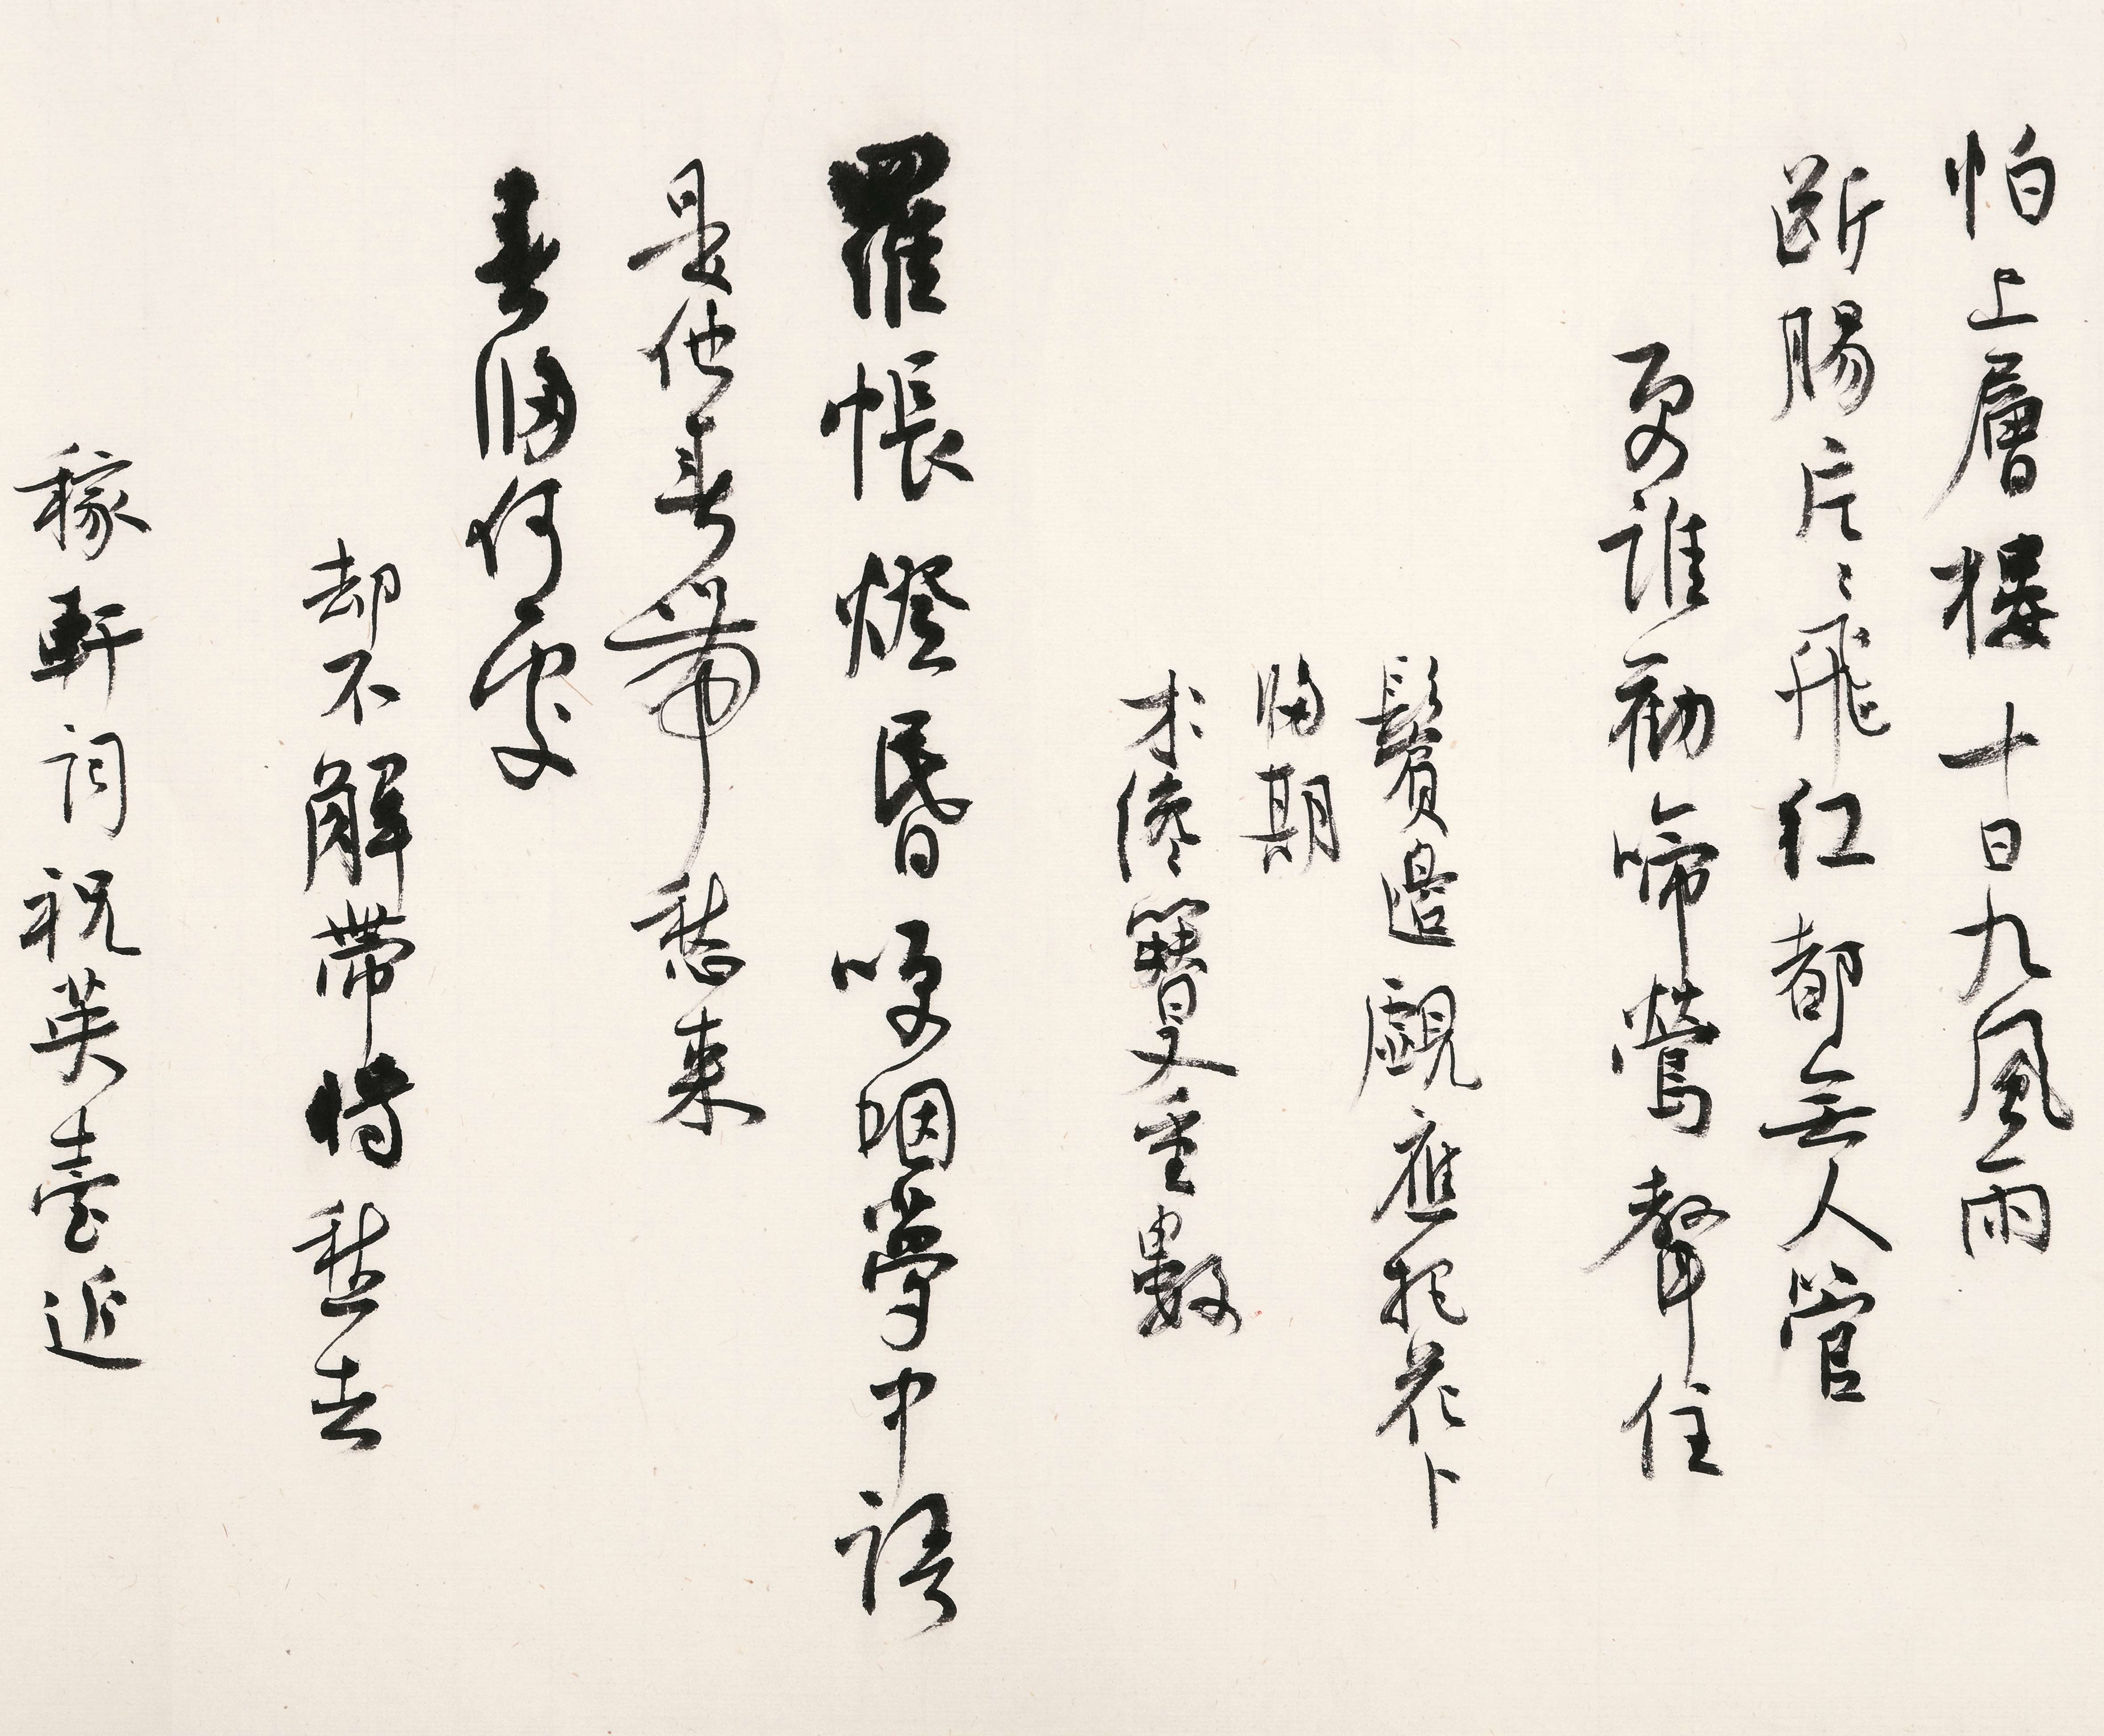 怕上層樓十日九風雨
斷腸片〻飛紅都無人管
更誰勸啼鶯聲住
鬢邊覷應把花卜
歸期
才簪又重數
羅帳燈昏哽咽夢中語
是他春帶愁来
春歸何處
却不解帶將愁去
稼軒詞祝英臺近